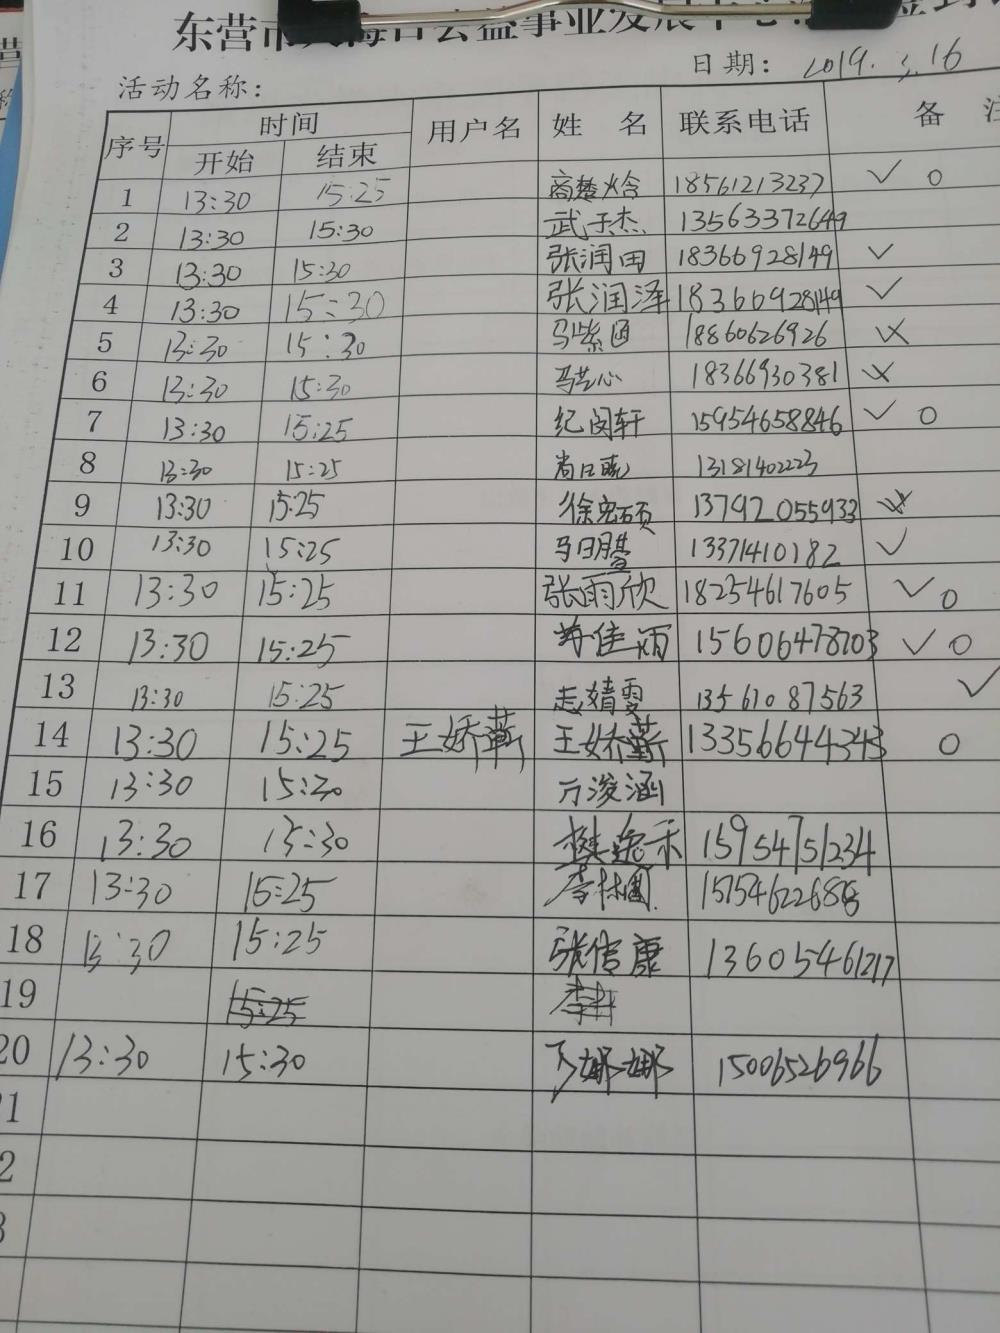 东营市 公益事业发展中心
日期: 2019.3.16
活动名称:
序号 时间 用户名 姓 名 联系电话 备 注
开始 结束
1 13:30 15:25 18561213237 ✓ O
2 13:30 15:30 武子杰 13563372649
3 13:30 15:30 张润田 18366928149 ✓
4 13:30 15:30 张润泽 18366928149 ✓
5 13:30 15:30 马紫涵 18860626926
6 13:30 15:30 马艺心 18366930381
7 13:30 15:25 纪闵轩 15954658846 ✓ O
8 13:30 15:25 尚口晓 13181402223
9 13:30 15:25 徐宏硕 13792055933
10 13:30 15:25 13371410182 ✓
11 13:30 15:25 张雨欣 18254617605 ✓ O
12 13:30 15:25 佳 15606478703 ✓ O
13 13:30 15:25 婧雯 13561087563 ✓
14 13:30 15:25 王娇蕲 王娇蕲 13356644343 O
15 13:30 15:30 万浚涵
16 13:30 15:30 樊逸禾 15954751234
17 13:30 15:25 李林 15154622688
18 13:30 15:25 张信康 13605461217
19 15:25 李
20 13:30 15:30 娜娜 15006526966
1
2
3